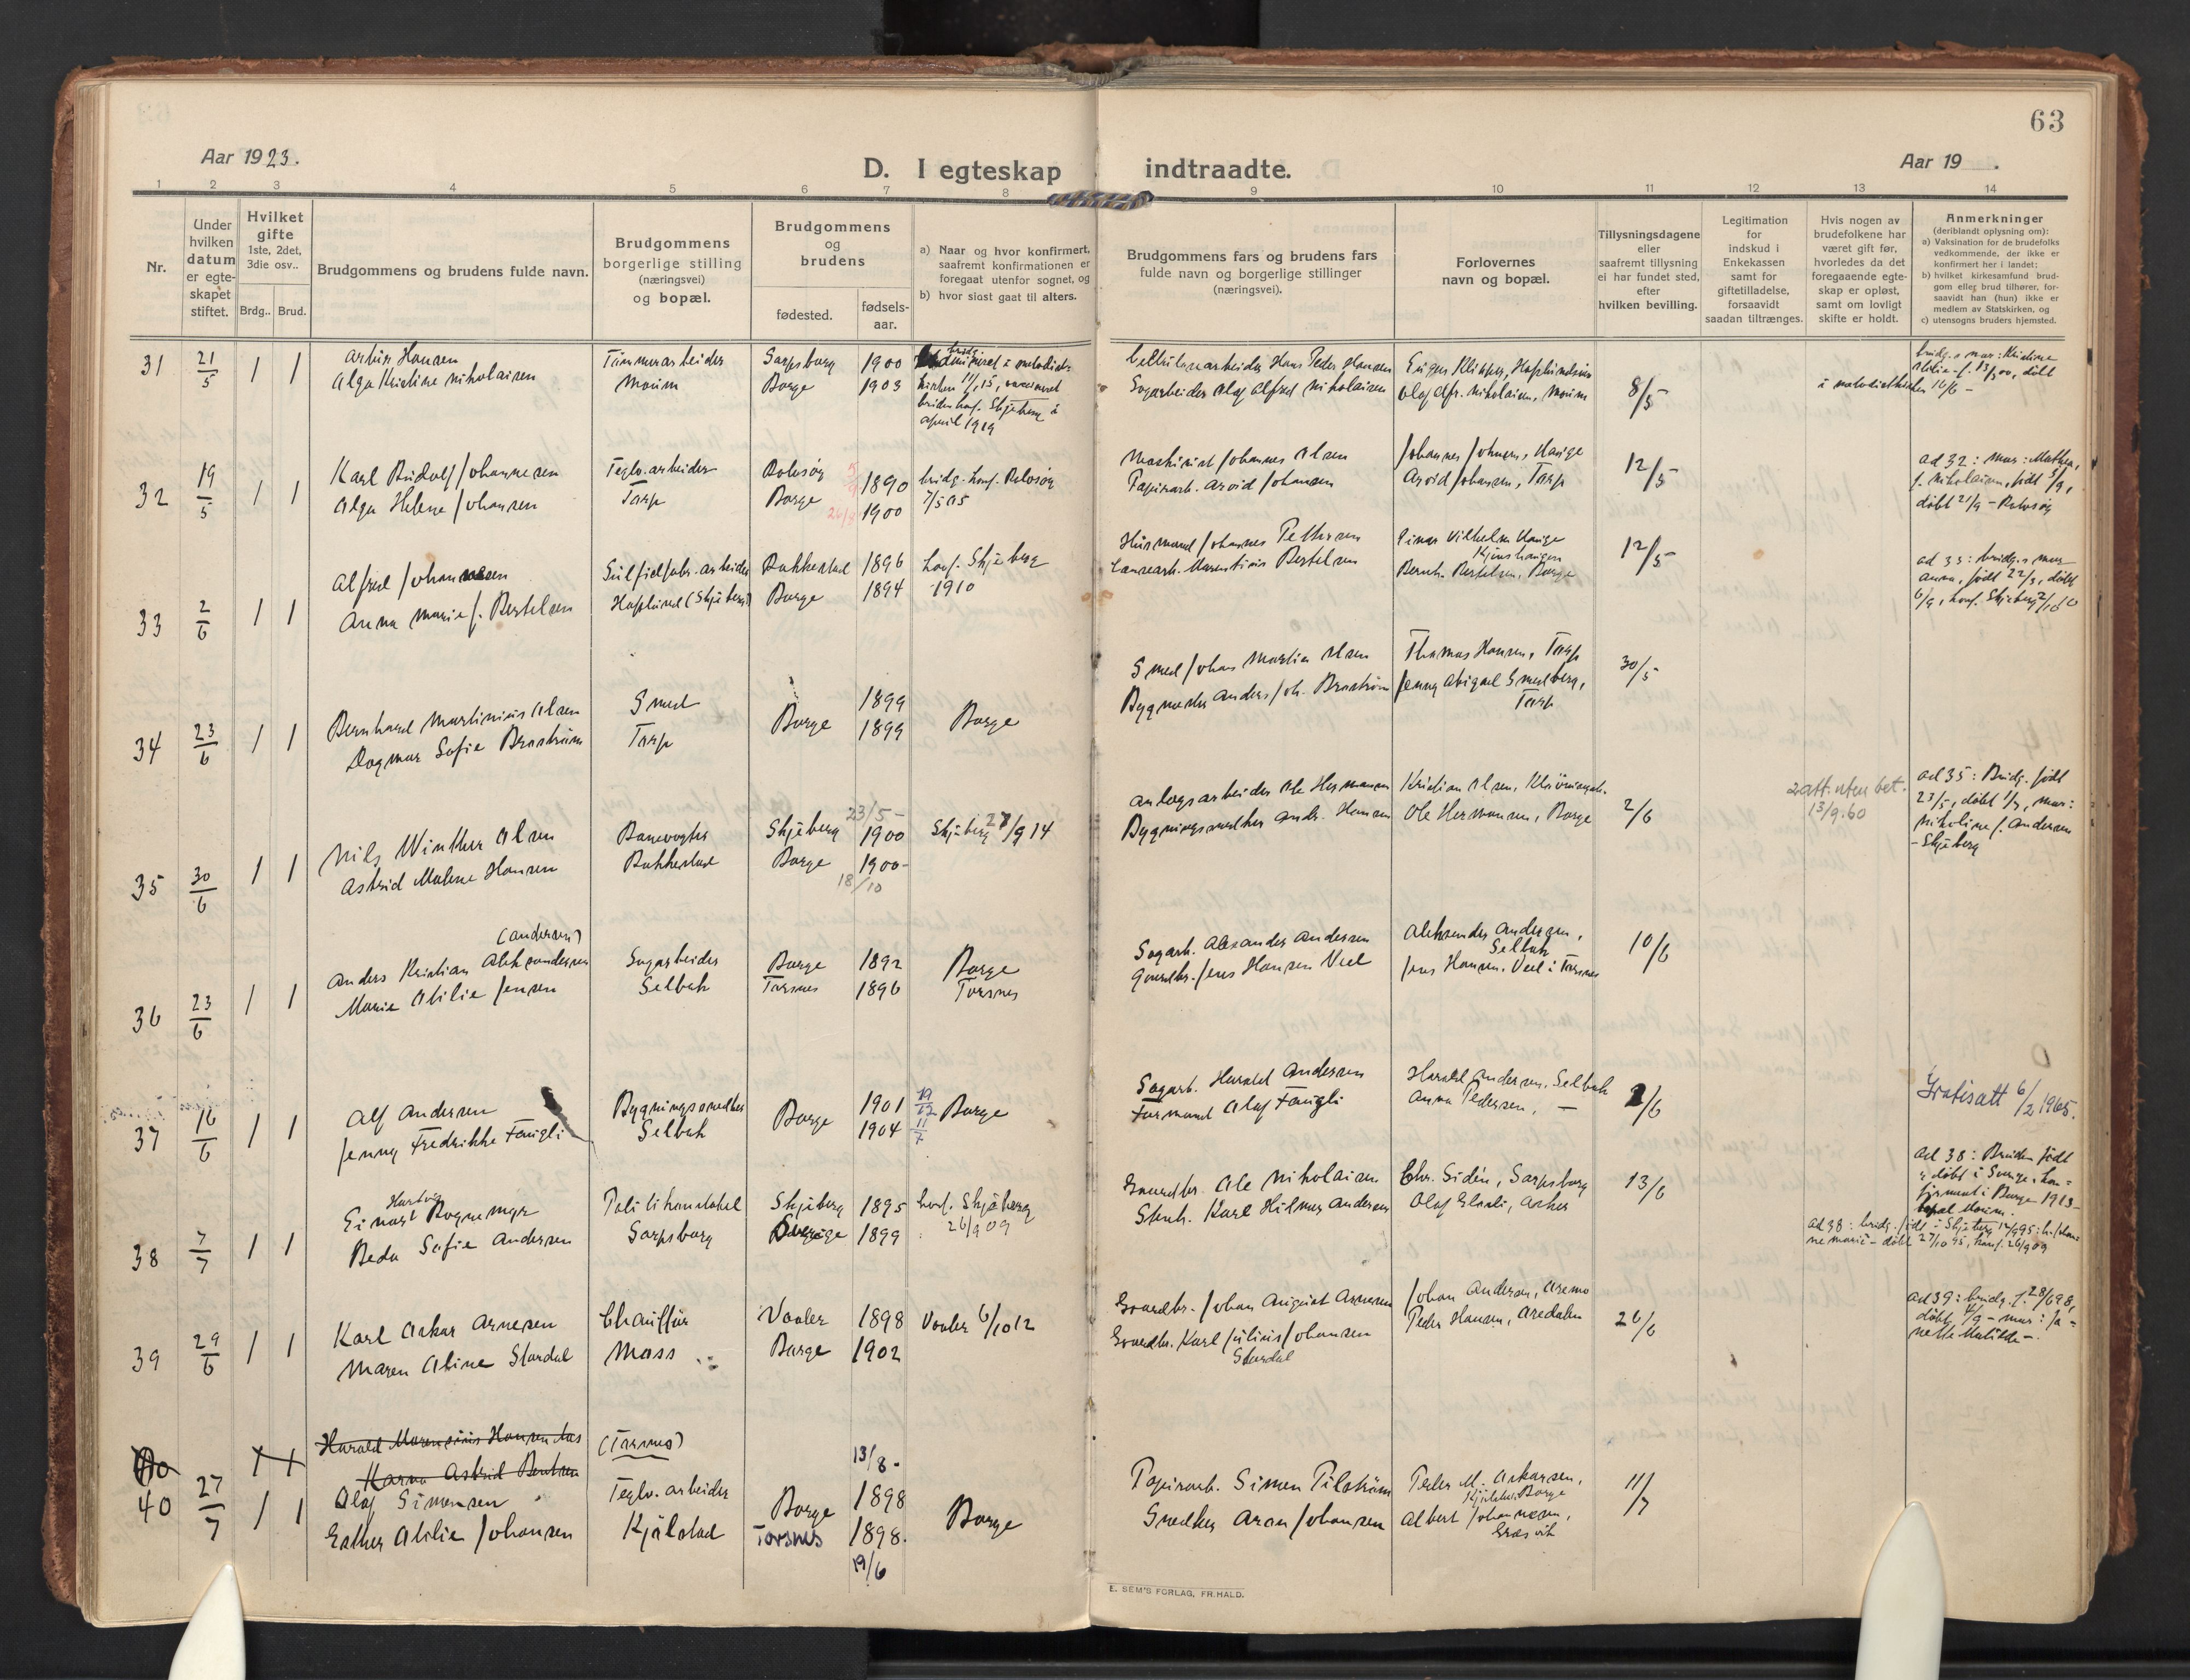 63
Aar 1923.
D. I egteskap indtraadte.
Aar 19
1 2 3 4 5 6 7 8 9 10 11 12 13 14
Nr.
Under hvilken datum er egte-skapet stiftet.
Hvilket gifte 1ste, 2det, 3die osv..
Brdg.. Brud.
Brudgommens og brudens fulde navn.
Brudgommens borgerlige stilling (næringsvei) og bopæl.
Brudgommens og brudens
fødested.
fødsels-aar.
a) Naar og hvor konfirmert, saafremt konfirmationen er foregaat utenfor sognet, og
b) hvor sidst gaat til alters.
Brudgommens fars og brudens fars fulde navn og borgerlige stillinger (næringsvei).
Forlovernes navn og bopæl.
Tillysningsdagene eller saafremt tillysning ei har fundet sted, efter hvilken bevilling.
Legitimation for indskud i Enkekassen samt for giftetilladelse, forsaavidt saadan tiltrænges.
Hvis nogen av brudefolkene har været gift før, hvorledes da det foregaaende egte-skap er opløst, samt om lovligt skifte er holdt.
Anmerkninger
(deriblandt oplysning om):
a) Vaksination for de brudefolks vedkommende, der ikke er konfirmert her i landet;
b) hvilket kirkesamfund brud-gom eller brud tilhører, for-saavidt han (hun) ikke er medlem av Statskirken, og
c) utensogns bruders hjemsted.
31 21/5 1 1
Arthur Hansen
Olga Kristine Nikolaisen
Tømmerarbeider
Moum
Sarpsborg 1900
Borge 1903
konf. Skjeberg i
april 1919
Hans Peder Hansen
Sagarbeider Olaf Alfred Nikolaisen
Olaf Alfr. Nikolaisen, Moum
8/5
32 19/5 1 1
Karl Rudolf Johannesen
Olga Helene Johansen
Teglv.arbeider
Torp
Rolvsøy 1890
Borge 1900
brudg. konf. Rolvsøy
Maskinist Johannes Olsen
Papirarb. Arvid Johansen
Johannes Johnsen, Hauge
Arvid Johansen, Torp
12/5
ad 32: mor: Mathea,
f. Nikolaisen, født 5/9,
døbt 21/9 - Rolvsøy
33 2/6 1 1
Alfred Johannesen
Anna Marie f. Bertelsen
Sulfidfabr.arbeider
Hafslund (Skjeberg)
Rakkestad 1896
Borge 1894
konf. Skjeberg
1910
Husmand Johannes Pettersen
Marentius Bertelsen
Einar Vilhelm Hauge
Bernh. Bertelsen, Borge
12/5
ad 33: brudg.s mor
Anna, født 22/3, døbt
34 23/6 1 1
Bernhard Martinius Olsen
Dagmar Sofie Brostrøm
Smed
Torp
Borge
1899
1899
Borge
Smed Johan Martin Olsen
Bygmester Anders Joh. Brostrøm
Thomas Hansen, Torp
Jenny Abigael Smedberg,
Torp
30/5
35 30/6 1 1
Nils Winther Olsen
Astrid Malene Hansen
Banevogter
Rakkestad
23/5-
Skjeberg 1900
Borge 1900-
18/10
Skjeberg 27/9 14
Anlægsarbeider Ole Hermansen
Bygningssnedker Andr. Hansen
Ole Hermansen, Borge
2/6
2 att. uten bet.
13/9.60
ad 35: Brudg. født
23/5, døbt 1/7, mor:
Nikoline f. Andersen
- Skjeberg
36 23/6 1 1
(Andersen)
Anders Kristian Aleksandersen
Marie Otilie Jensen
Sagarbeider
Selbak
Borge 1892
Torsnes 1896
Borge
Torsnes
Sagarb. Alexander Andersen
Gaardbr. Jens Hansen Veel
Aleksander Andersen,
Selbak
Jens Hansen, Veel i Torsnes
10/6
37 16/6 1 1
Alf Andersen
Jenny Fredrikke Faugli
Bygningssnedker
Selbak
Borge
1901 19/12
1904 11/7
Borge
Sagarb. Harald Andersen
Formand Olaf Faugli
Harald Andersen, Selbak
Anna Pedersen, —
2/6
Gratisatt 6/2 1965.
38 7/7 1 1
Hartvig
Einar Rognemyr
Beda Sofie Andersen
Politikonstabel
Sarpsborg
Skjeberg 1895
Sverige 1899
konf. Skjeberg
26/9 09
Gaardbr. Ole Nikolaisen
Stenh. Karl Hilmer Andersen
Chr. Sidén, Sarpsborg
13/6
ad 38: Bruden født
& døbt i Sverige, kon-
firmert i Borge 1913-
bopæl Moum.
39 29/6 1 1
Karl Oskar Arnesen
Maren Oline Stordal
Chauffør
Moss
Vaaler 1898
Borge 1902
Vaaler 6/10 12
Gaardbr. Johan August Arnesen
Gaardbr. Karl Julius Johansen
Stordal
Johan Andersen, Aremo
Peder Hansen, Aredalen
26/6
ad 39: brudg. f. 28/6 98,
døbt 4/9 - mor: Ja-
nette Matilde -.
Harald Marensius Hansen
Karen Astrid Bentsen
(Torsnes)
40 27/7 1 1
Olaf Simensen
Esther Otilie Johansen
Teglv.arbeider
Kjølstad
13/8-
Borge 1898
Torsnes 1898.
19/6
Borge
Papirarb. Simen Pilstrøm
Snedker Aron Johansen
Peder M. Oskarsen,
Borge
Albert Johannesen,
Græsvik
11/7
E. SEM'S FORLAG, FR.HALD.